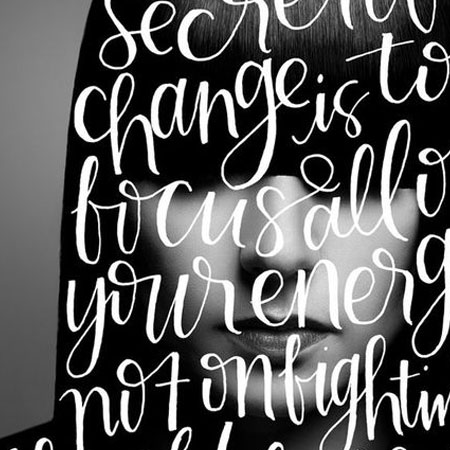 secret
change is to
focus all o
your energ
not on fightin